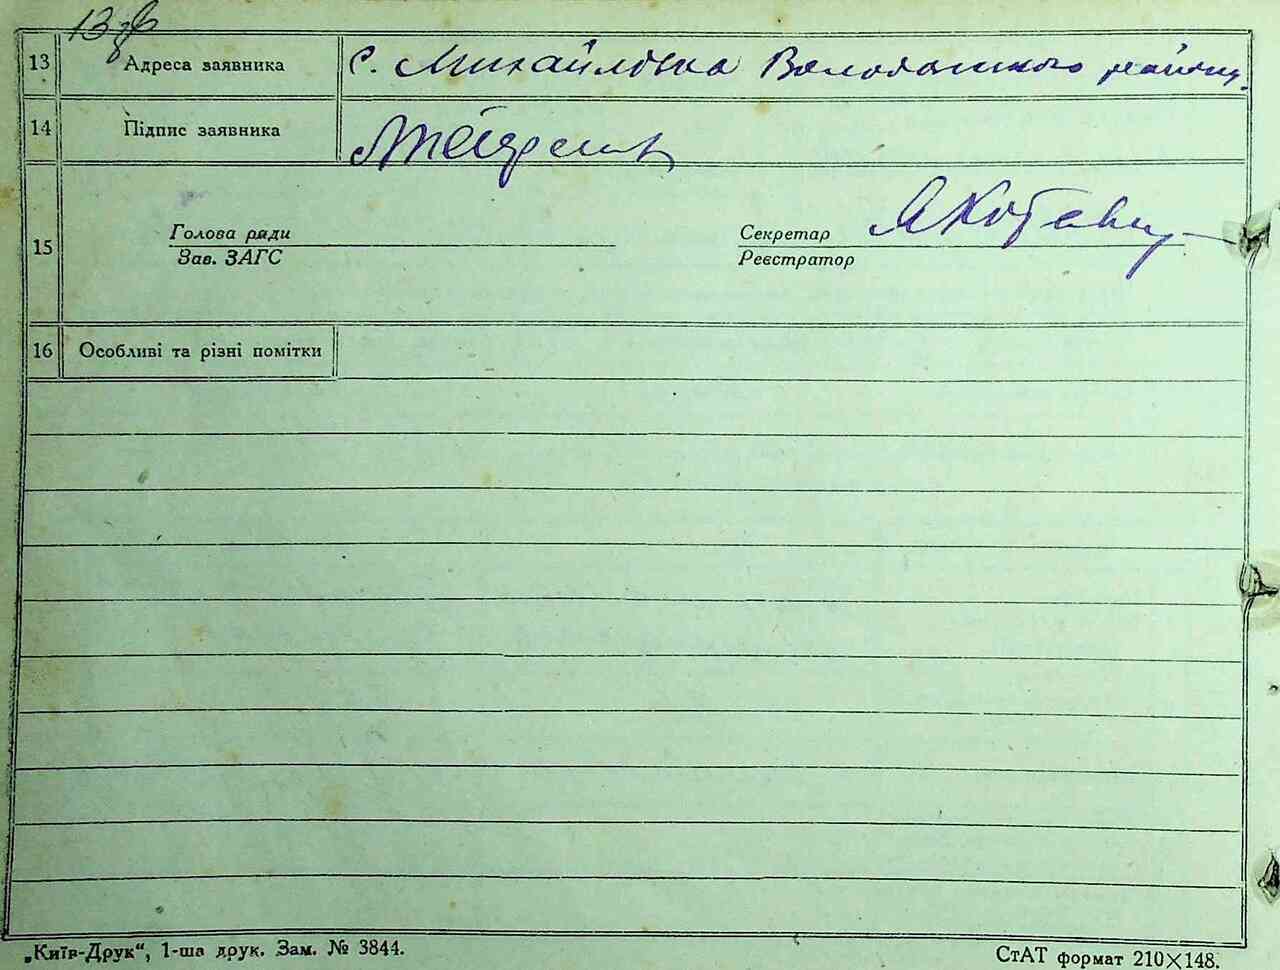 13 зв
13 Адреса заявника с. Михайлівка Володарського району.
14 Підпис заявника
15 Голова ради Секретар
Зав. ЗАГС Реєстратор
16 Особливі та різні помітки
„Київ-Друк“, 1-ша друк. Зам. № 3844. СтАТ формат 210×148.